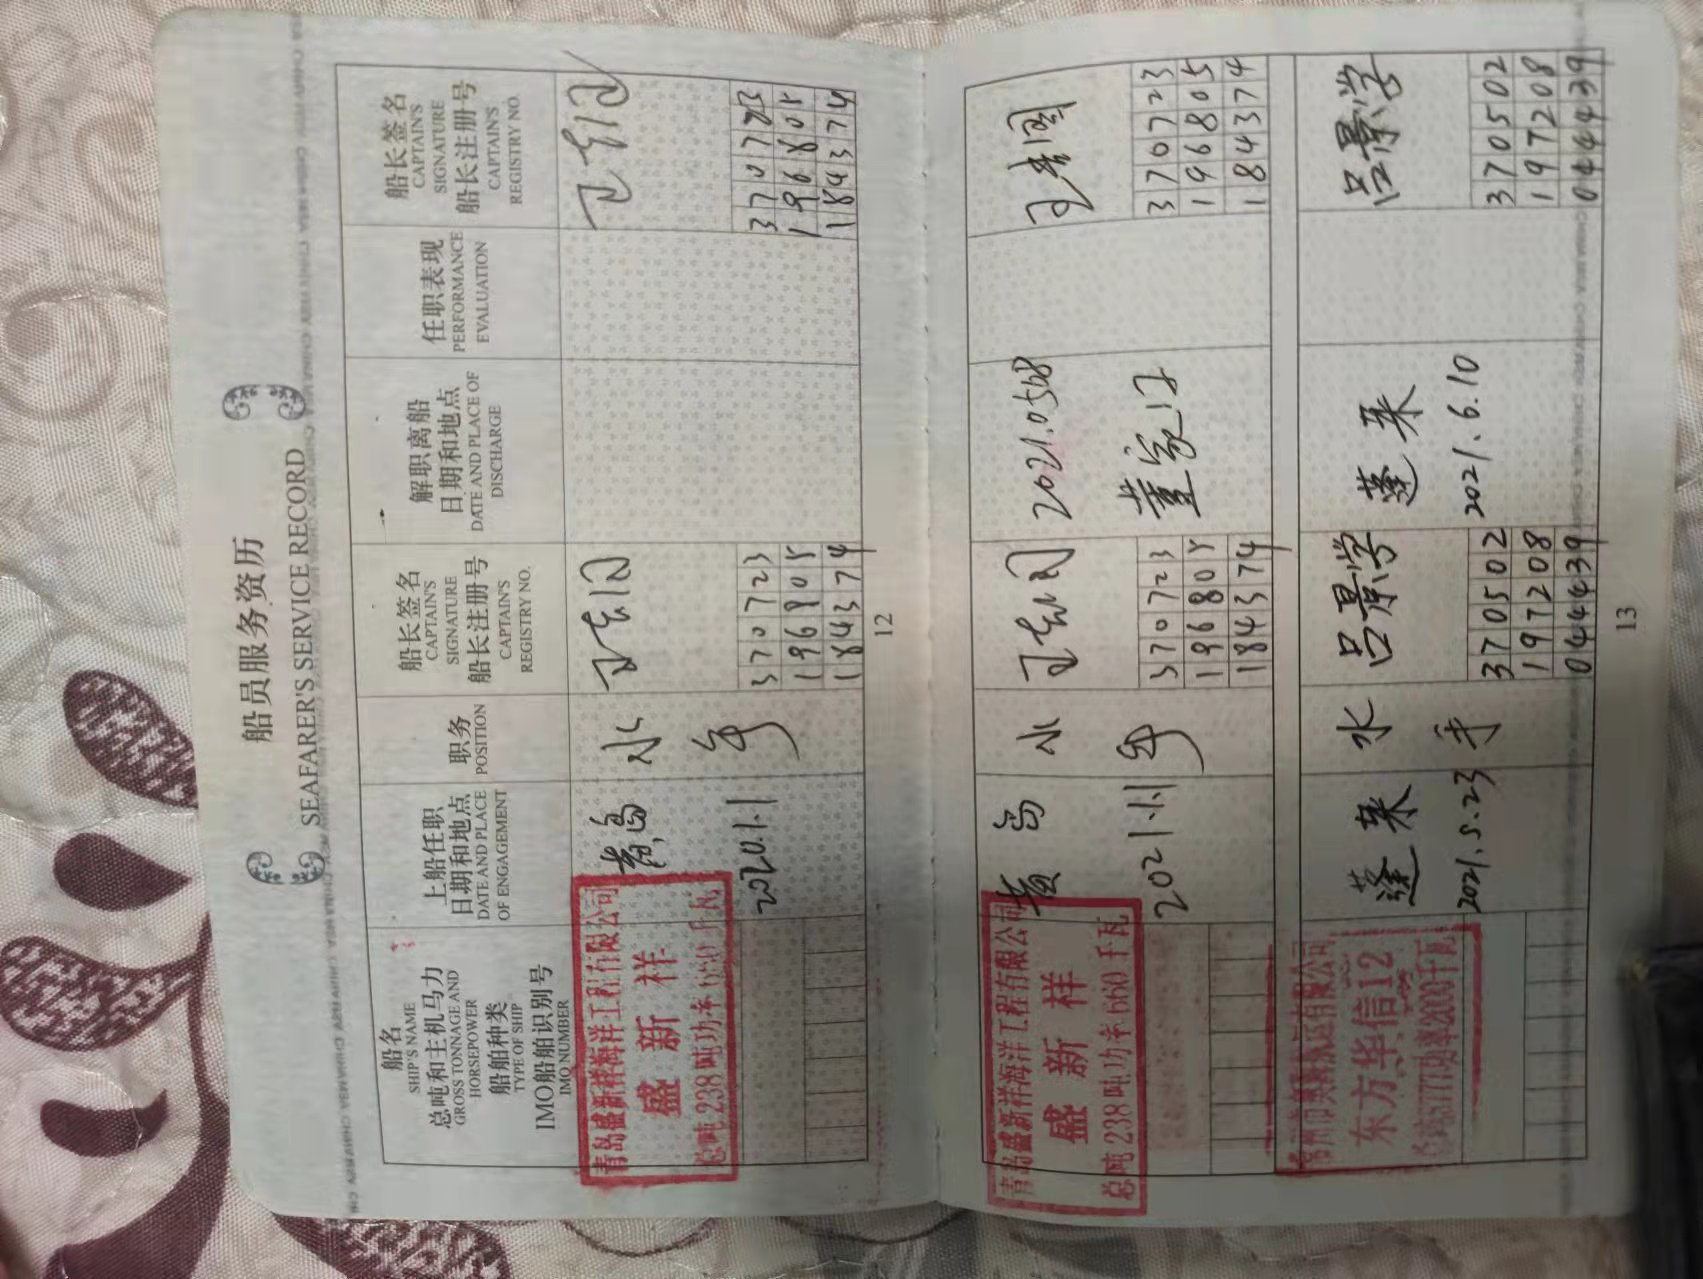 船员服务资历
SEAFARER'S SERVICE RECORD
船名
SHIP'S NAME
总吨和主机马力
GROSS TONNAGE AND
HORSEPOWER
船舶种类
TYPE OF SHIP
IMO船舶识别号
IMO NUMBER
上船任职
日期和地点
DATE AND PLACE
OF ENGAGEMENT
职务
POSITION
船长签名
CAPTAIN'S
SIGNATURE
船长注册号
CAPTAIN'S
REGISTRY NO.
解职离船
日期和地点
DATE AND PLACE OF
DISCHARGE
任职表现
PERFORMANCE
EVALUATION
船长签名
CAPTAIN'S
SIGNATURE
船长注册号
CAPTAIN'S
REGISTRY NO.
青岛盛新祥海洋工程有限公司
盛新祥
总吨238吨功率660千瓦
青岛
2020.1.1
水
手
370723
196805
184374
370723
196805
184374
12
青岛盛新祥海洋工程有限公司
盛新祥
总吨238吨功率660千瓦
黄岛
2021.1.1
水
手
370723
196805
184374
董家口
370723
196805
184374
东方华信12
蓬莱
2021.5.23
水
手
吕景学
370502
197208
044439
蓬莱
2021.6.10
吕景学
370502
197208
044439
13